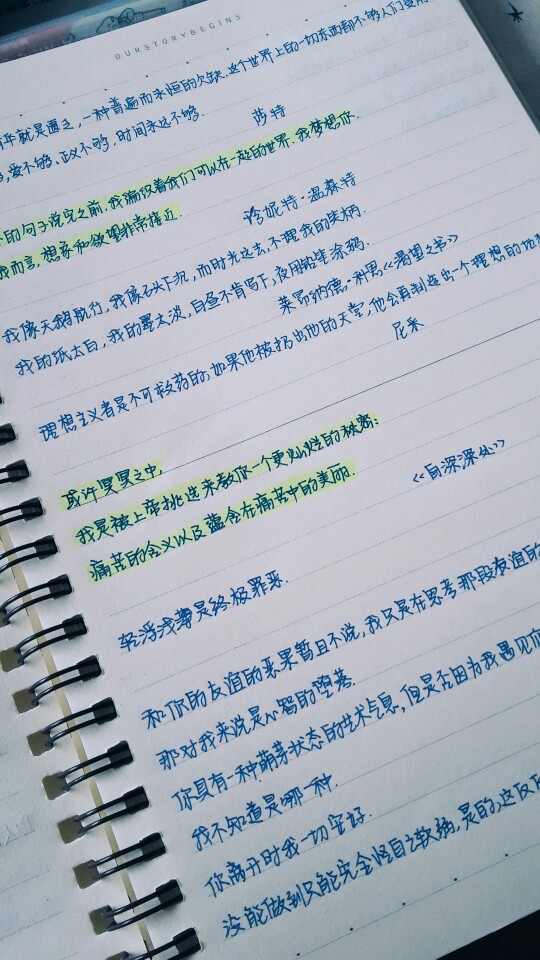 OURSTORYBEGINS
就是匮乏，一种普遍而永恒的欠缺。这个世界上的一切东西都不够人们
爱不够、政不够，时间永远不够。 萨特
的句子说完之前，我偏仅着我们可以在一起的世界。我梦想你。
我而言，想象和欲望非常接近。 珍妮特·温森特
我像天鹅航行，我像石头下沉，而时光远去，不理我的
我的纸太白，我的墨太淡，白昼不肯写下，夜用铅笔涂鸦。
莱昂纳德·科恩《渴望之书》
理想主义者是不可救药的，如果他被扔出他的天堂，他会再制造出一个理想的地
尼采
或许冥冥之中，
我是被上帝挑选来教你一个更灿烂的秘密：
痛苦的含义以及蕴含在痛苦中的美丽。 《自深深处》
轻浮浅薄是终极罪恶。
和你的友谊的恶果暂且不说，我只是在思考那段友谊的
那对我来说是心智的堕落。
你具有一种萌芽状态的艺术气息，但是否因为我遇见你
我不知道是哪一种。
你离开时我一切安好。
没能做到只能完全怪自己软弱，是的，这反